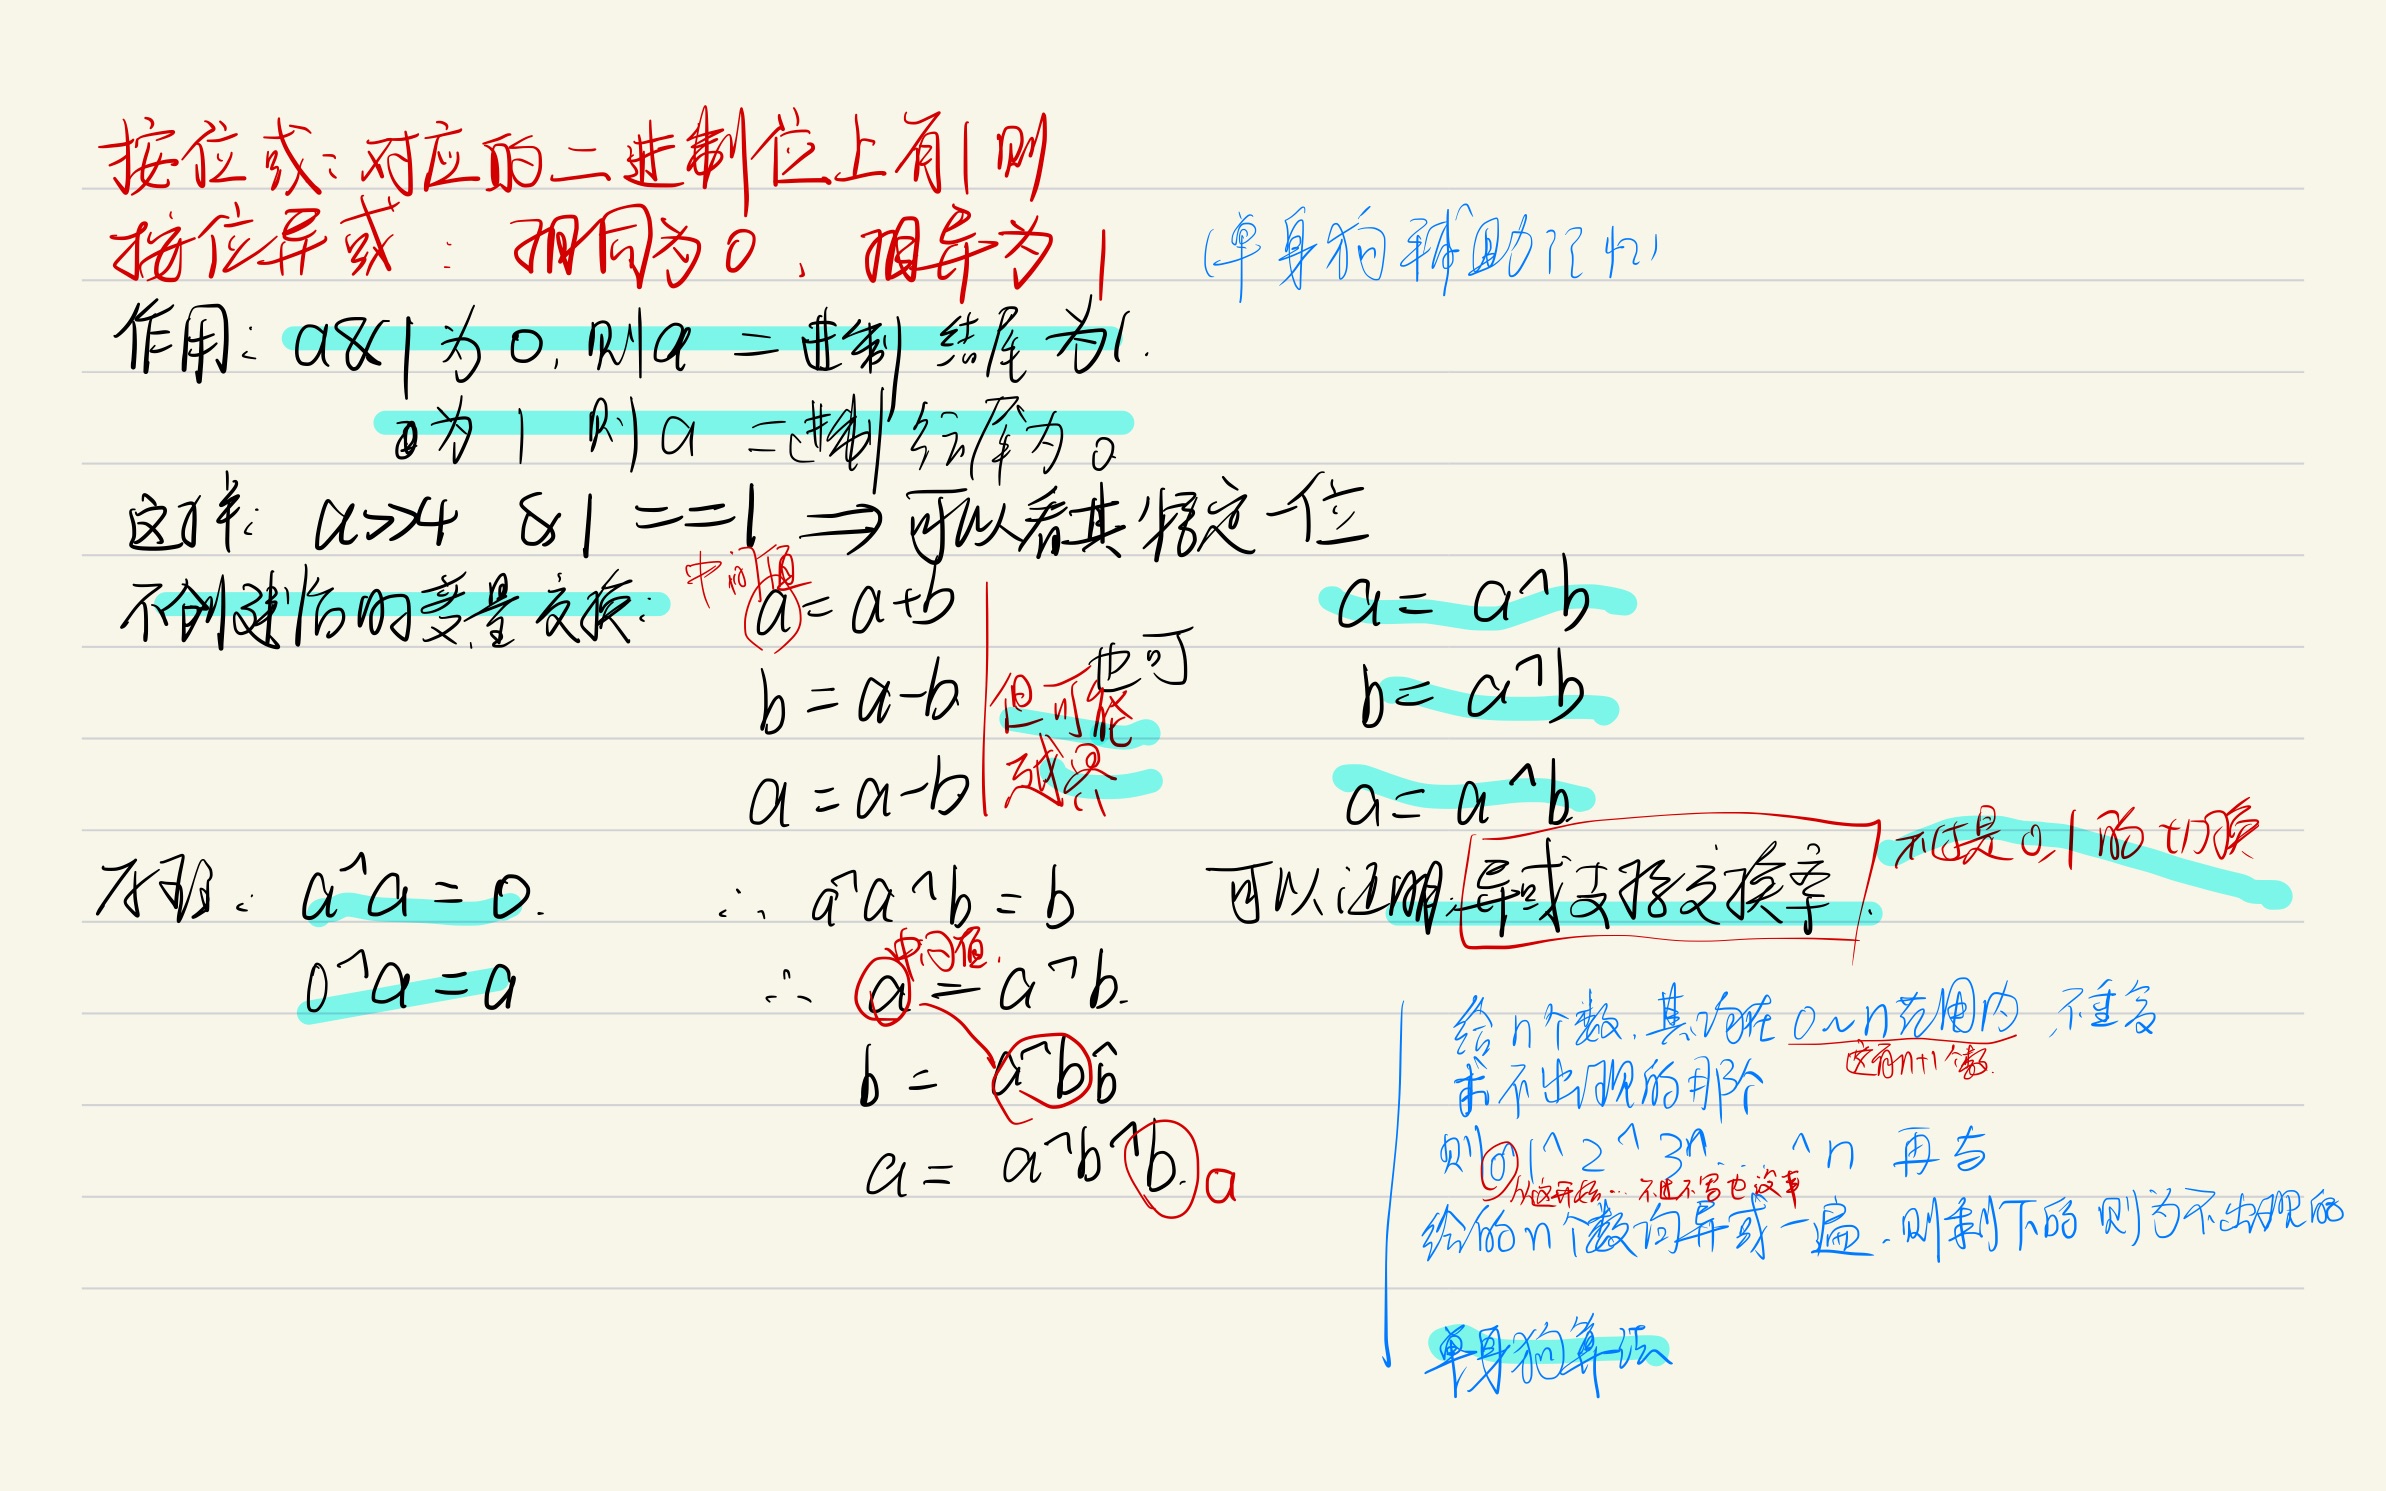 按位或：对应的二进制位上有1则
按位异或：相同为0，相异为1 （单身狗辅助记忆）
作用：a&1为0，则a二进制结尾为1.
为1 则a 二进制结尾为0
这样：a>>4 &1 ==1 ⇒ 可以看其指定一位
中间值
不创建临时变量交换： a = a+b
b = a-b
a = a-b
也可
但可能
越界
a = a^b
b = a^b
a = a^b
发现：a^a = 0. ∴ a^a^b = b 可以证明：异或支持交换率. 不过是0,1的切换
0^a = a ∴ a = a^b.
中间值.
b = a^b^b
a = a^b^b. a
给n个数，其均在0~n范围内，不重复
这有n+1个数.
求不出现的那个
则0^1^2^3^...^n 再与
从这开始... 不过不写也没事
给的n个数间异或一遍，则剩下的则为不出现的
单身狗算法